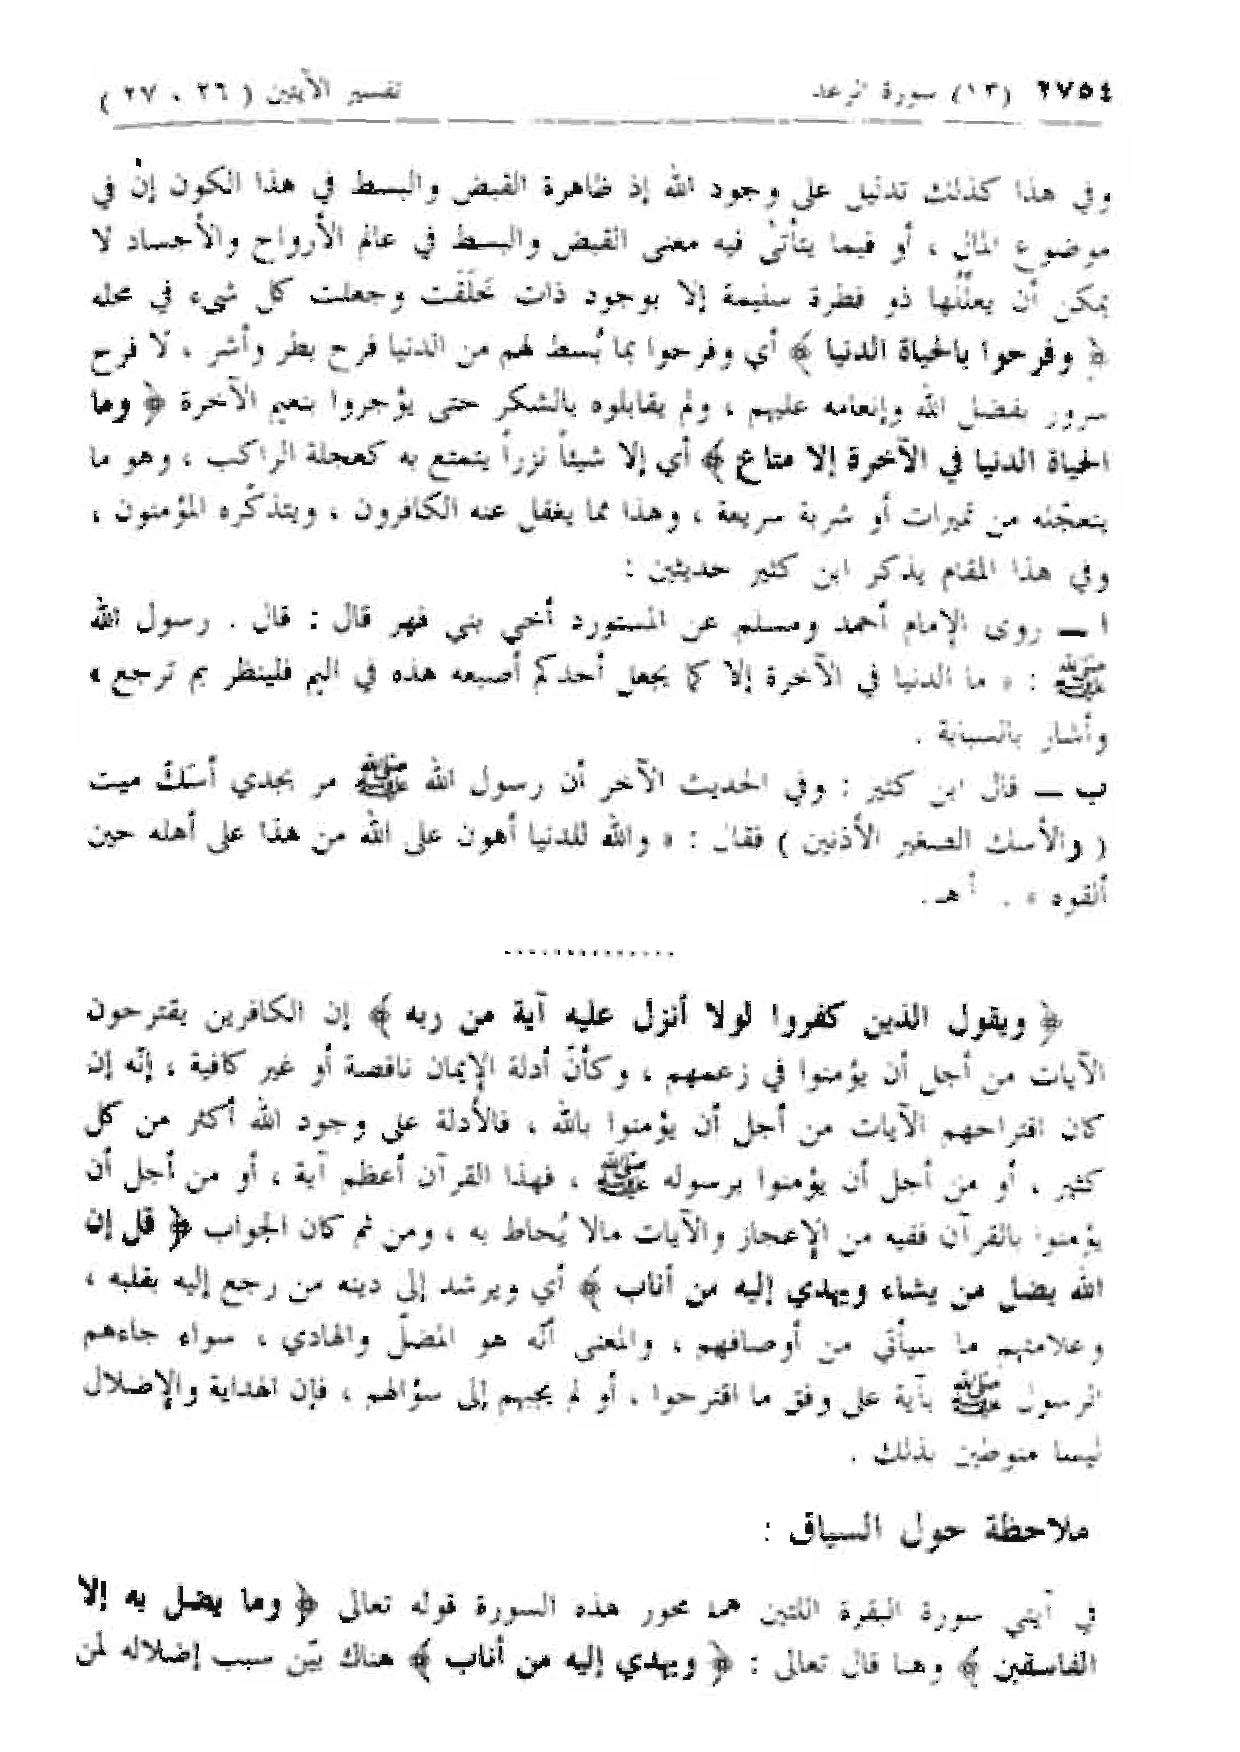 ٢٧٥٤ (١٣) سورة الرعد تفسير الآيتين ( ٢٦ ، ٢٧ )
وفي هذا كذلك تدليل على وجود الله إذ ظاهرة القبض والبسط في هذا الكون إنْ في
موضوع المال ، أو فيما يتأتىٰ فيه معنى القبض والبسط في عالم الأرواح والأجساد لا
يمكن أن يعلّلها ذو فطرة سليمة إلا بوجود ذات خَلَقَت وجعلت كل شيء في محله
﴿ وفرحوا بالحياة الدنيا ﴾ أي وفرحوا بما بُسط لهم من الدنيا فرح بطر وأشر ، لا فرح
سرور بفضل الله وإنعامه عليهم ، ولم يقابلوه بالشكر حتى يؤجروا بنعيم الآخرة ﴿ وما
الحياة الدنيا في الآخرة إلا متاع ﴾ أي إلا شيئاً نزراً يتمتع به كعجلة الراكب ، وهو ما
يتعجّله من تميرات أو شربة سريعة ، وهذا مما يغفل عنه الكافرون ، ويتذكّره المؤمنون ،
وفي هذا المقام يذكر ابن كثير حديثين :
ا ــ روى الإمام أحمد ومسلم عن المستورد أخي بني فهر قال : قال . رسول الله
ﷺ : « ما الدنيا في الآخرة إلا كما يجعل أحدكم أصبعه هذه في اليم فلينظر بم ترجع »
وأشار بالسبابة .
ب ــ قال ابن كثير : وفي الحديث الآخر أن رسول الله ﷺ مر بجدي أسَكّ ميت
( والأسك الصغير الأذنين ) فقال : « والله للدنيا أهون على الله من هذا على أهله حين
ألقوه » . أ هـ .
..............
﴿ ويقول الذين كفروا لولا أنزل عليه آية من ربه ﴾ إن الكافرين يقترحون
الآيات من أجل أن يؤمنوا في زعمهم ، وكأنّ أدلة الإيمان ناقصة أو غير كافية ، إنّه إن
كان اقتراحهم الآيات من أجل أن يؤمنوا بالله ، فالأدلة على وجود الله أكثر من كل
كثير ، أو من أجل أن يؤمنوا برسوله ﷺ ، فهذا القرآن أعظم آية ، أو من أجل أن
يؤمنوا بالقرآن ففيه من الإعجاز والآيات مالا يُحاط به ، ومن ثم كان الجواب ﴿ قل إن
الله يضل من يشاء ويهدي إليه من أناب ﴾ أي ويرشد إلى دينه من رجع إليه بقلبه ،
وعلامتهم ما سيأتي من أوصافهم ، والمعنى أنّه هو المضلّ والهادي ، سواء جاءهم
الرسول ﷺ بآية على وفق ما اقترحوا ، أو لم يجبهم إلى سؤالهم ، فإن الهداية والإضلال
ليسا منوطين بذلك .
ملاحظة حول السياق :
في آيتي سورة البقرة اللتين هما محور هذه السورة قوله تعالى ﴿ وما يضل به إلا
الفاسقين ﴾ وهنا قال تعالى : ﴿ ويهدي إليه من أناب ﴾ هناك بيّن سبب إضلاله لمن